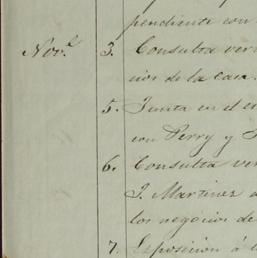 pendiente con
Nov.e 3. Consulta ver
cios de la casa.
5. Junta en el
con Perry y
6. Consulta ver
J. Martinez
los negocios de
7. Exposición á